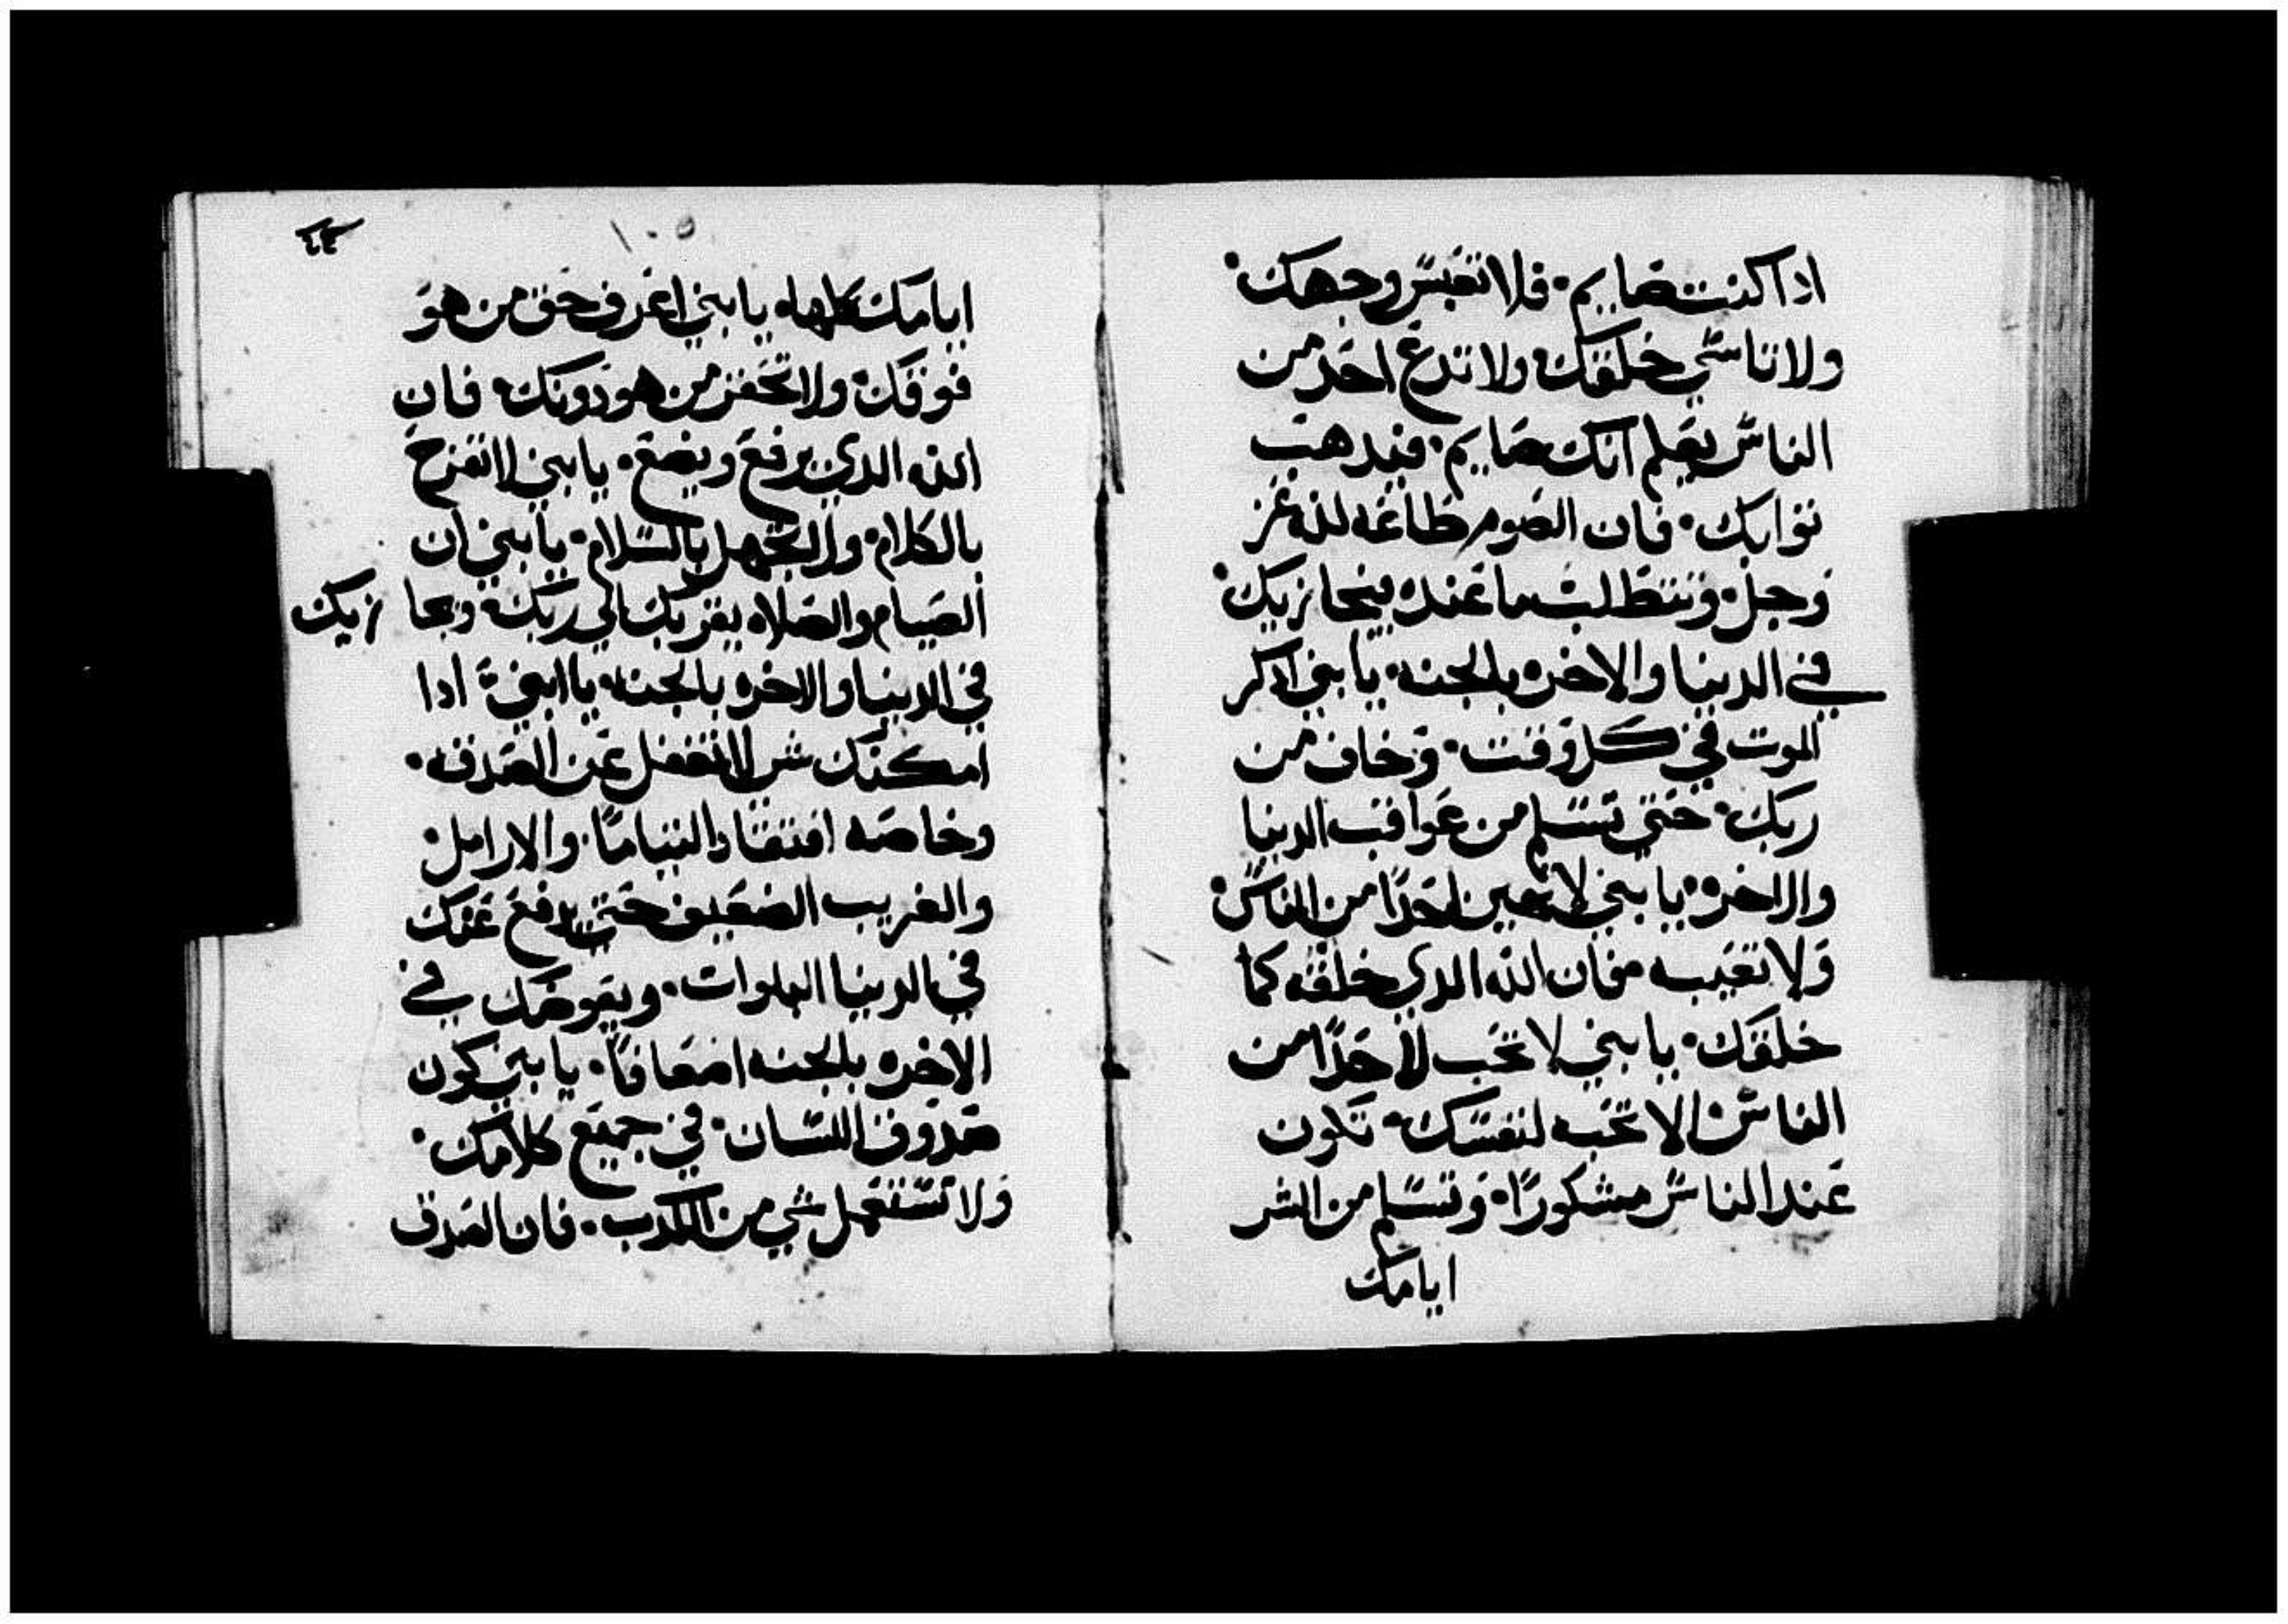 اذا كنت صايم· فلا تعبس وجهك·
ولا تناسى خلقك· ولا تدع احد من
الناس يعلم انك صايم· فيدهب
توابك· فان الصوم طاعه لله عز
وجل· وتتطلب ما عنده فيجازيك·
في الدنيا والاخره بالجنه· يا بني ادكر
الموت في كل وقت· وخاف من
ربك· حتي تسلم من عواقب الدنيا
والاخره· يا بني لا تعين احدًا من الناس·
ولا تعيبه فان الله الدي خلقه كما
خلقك· يا بني لا تحب لاحدًا من
الناس· الا تحبه لنفسك· تكون
عند الناس مشكورًا· وتسلم من الشر
ايامك
١٠٥
ايامك كلها· يا بني اعرف حق من هو
فوقك· ولا تحقر من هو دونك· فان
الله الدي يرفع ويضع· يا بني لا تفرح
بالكلام· ولا تجهل بالسلام· يا بني ان
الصيام والصلاه يقربك الي ربك· ويجازيك
في الدنيا والاخره بالجنه· يا ابني ادا
امكنك شي لا تغفل عن الصدقه·
وخاصه افتقاد اليتاما· والارامل·
والغريب الضعيف حتي يدفع عنك
في الدنيا البلوات· ويعوضك في
الاخره بلجنه اضعافًا· يا بني كون
صدوق اللسان· في جميع كلامك·
ولا تستعمل شي من الكدب· فان الصدق